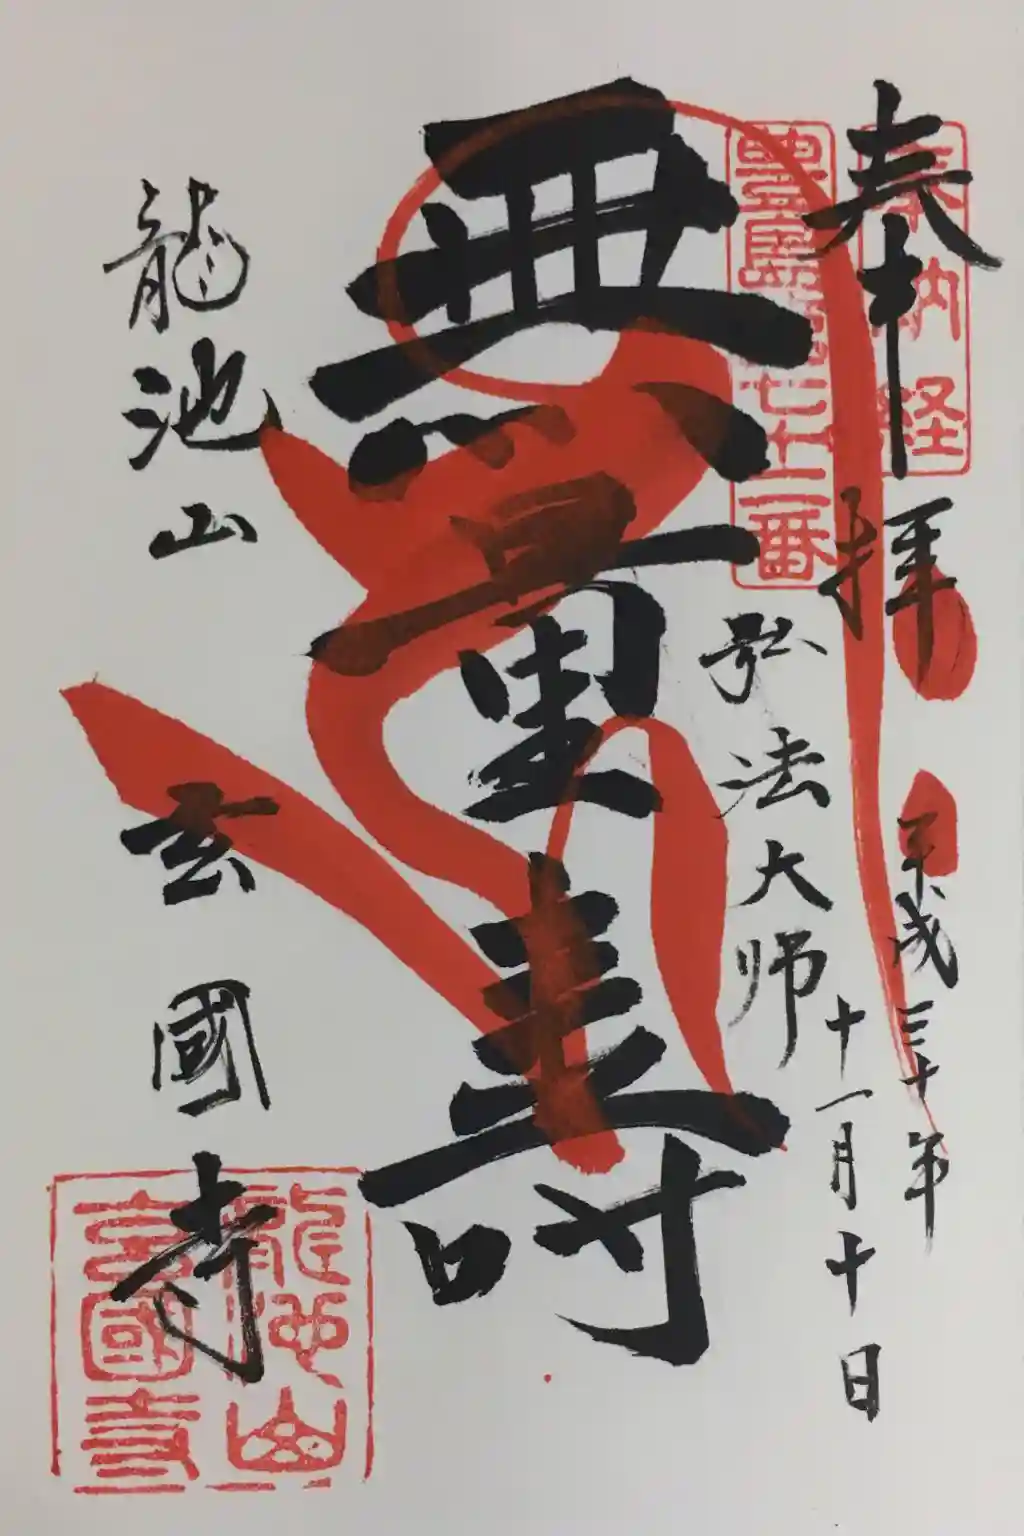 奉拝
奉納経
平成三十年
十一月十日
豊島第七十二番
弘法大師
無量寿
龍池山
玄國寺
龍池山
玄國寺